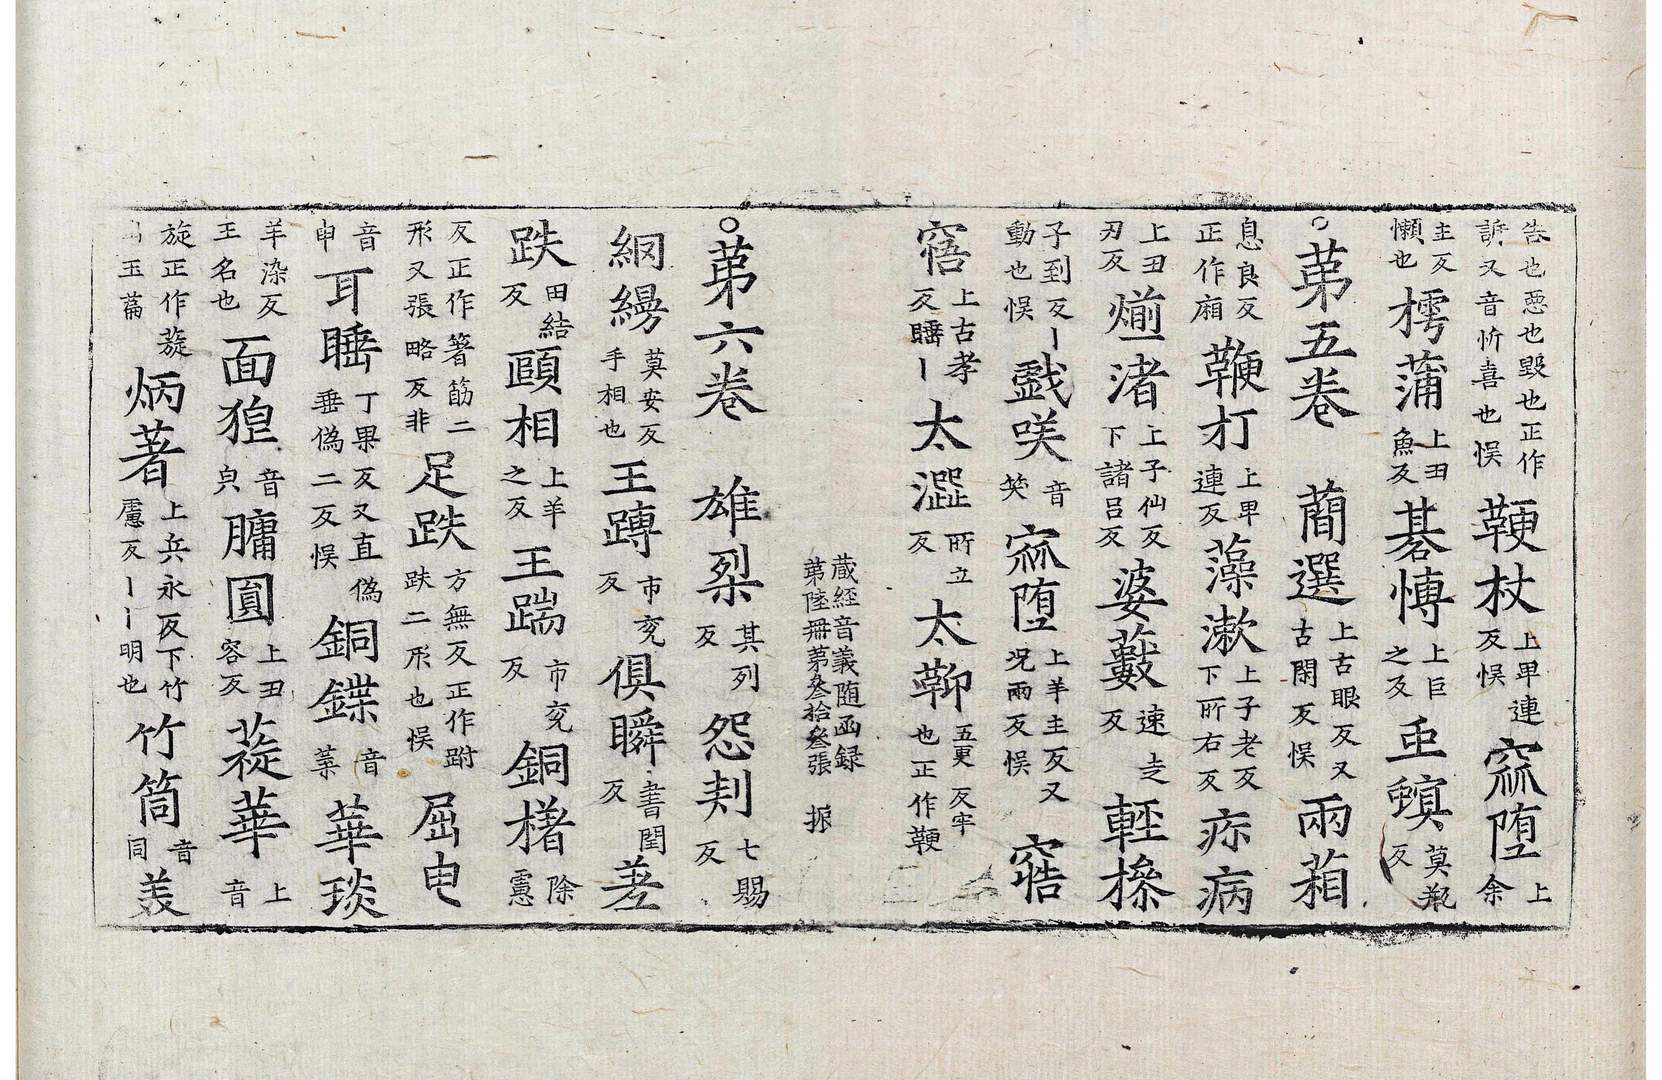 告也惡也毀也正作諕又音忻喜也悮鞭杖上卑連反悮窳堕上余
主反懶也樗蒲上丑魚反碁愽上巨之反虫螟莫瓶反
○苐五卷 蕳選上古眼反又古閑反悮兩葙
息良反正作廂鞭打上卑連反藻漱上子老反下所右反疢病
上丑刃反煎渚上子仙反下諸呂反婆藪速走反輕摻
子到反丨動也悮戯咲音笑窳堕上羊主反又況兩反悮窖
寤上古孝反睡丨太澀所立反太䩕五更反牢也正作鞕
蔵經音義随函録 苐陸冊苐叄拾叄張 振
○苐六卷 雄烈其列反怨刾七賜反
網縵莫安反手相也王蹲市兖反俱瞬書閏反差
跌田結反頤相上羊之反王踹市兖反銅櫡除慮
反正作箸筯二形又張略反非足跌方無反正作跗趺二形也悮屈申
音申耳睡丁果反又直偽垂偽二反悮銅鍱音葉華琰
羊染反王名也面㹰音皃𦟛圓上丑容反蓗華上音
旋正作蔙玉萹炳著上兵永反下竹慮反丨丨明也竹筒音同羙